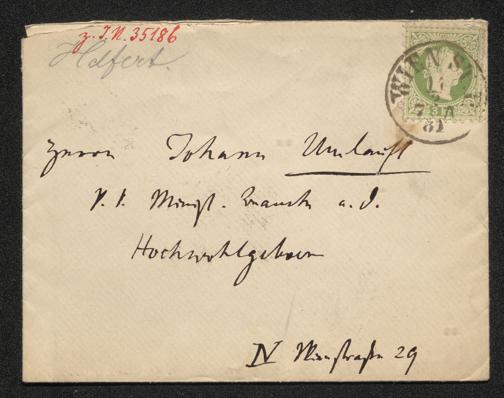 z. I.N. 35186
Helfert.
WIEN
81
Herrn Johann Umlauft
k. k. Minist. Beamte a. d.
Hochwohlgeboren
IV Wienstraße 29